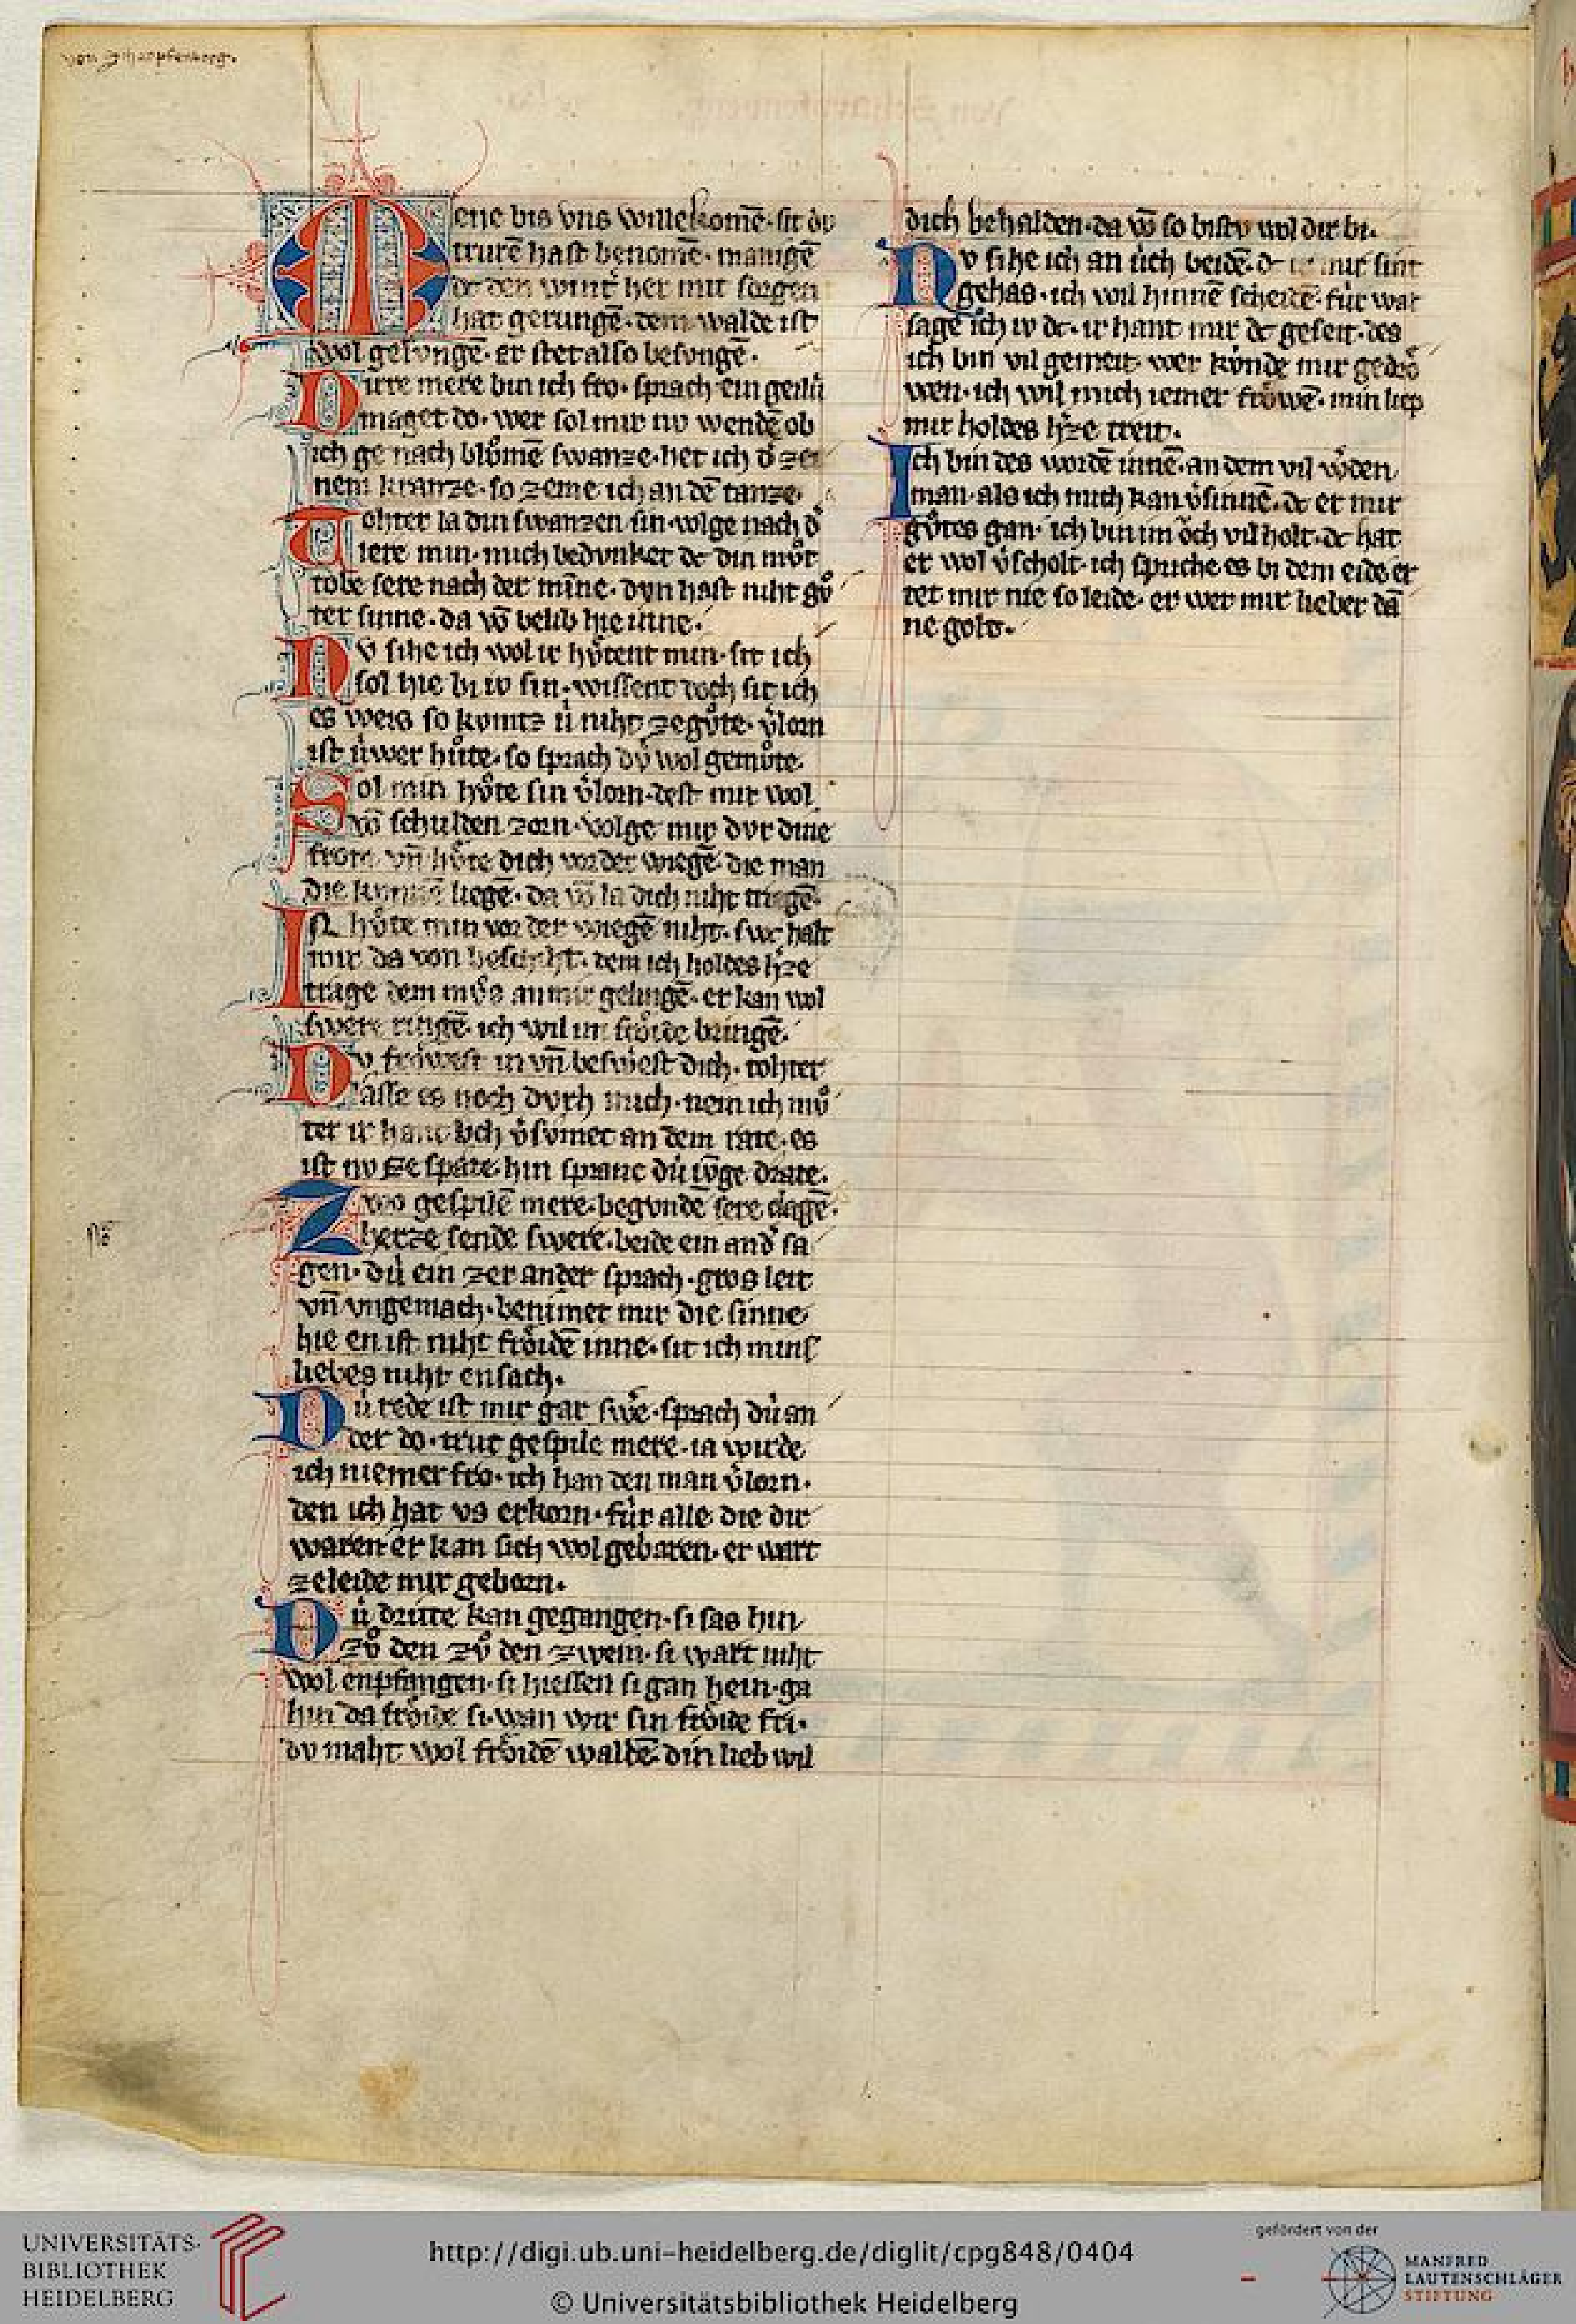 von Scharpfenberg.
Meije bis vns willekomē · sit dv
trurē hast benomē · manigē
dc den wint̾ her mit sorgen
hat gerungē · dem walde ist
wol gelvngē · er stet also besvngē ·
Dirre mere bin ich fro · sprach ein geilú
maget do · wer sol mir nv wendē ob
ich ge nach blůmē swanze · het ich d̾ zei
nem kranze · so zeme ich an dē tanze ·
Tohter la din swanzen sin · volge nach d̾
lere min · mich bedvnket dc din můt
tobe sere nach der miñe · dvn hast niht gů
ter sinne · da võ belib hie inne ·
Nv sihe ich wol ir hůtent min · sit ich
sol hie bi iv sin · wissent doch sit ich
es weis so komtz ú niht ze gůte · v̾lorn
ist úwer hůte · so sprach dú wol gemůte ·
Sol min hůte sin v̾lorn · dest mir wol
võ schulden zorn · volge mir dvr dine
frome vn̄ hůte dich vor der wiegē · die man
die kvnnē liegē · da võ la dich niht triegē ·
In hůte min vor der wiegē niht · swc halt
mir da von beschiht · dem ich holdes h̾ze
trage dem můs an mir gelingē · er kan wol
swere ringē · ich wil im frőide bringē ·
Dv frőwest in vn̄ beswe̾st dich · tohter
lasse es noch dvrh mich · nein ich mů
ter ir hant ůch v̾svmet an dem rate · es
ist nv ze spate · hin spranc dú ivnge drate ·
Zwo gespilē mere · begvndē sere clagē ·
herze sende swere · beide ein and̾ sa
gen · dú ein zer ander sprach · gros leit
vn̄ vngemach · benimet mir die sinne
hie en ist niht frőidē inne · sit ich mins
liebes niht ensach ·
Dú rede ist mir gar swe̾ · sprach dú an
der do · trut gespile mere · ia wirde
ich niemer fro · ich han den man v̾lorn ·
den ich hat vs erkorn · fúr alle die dir
waren er kan sich wol gebaren · er wart
ze leide mir geborn ·
Dú dritte kan gegangen · si sas hin
zů den zů den zwein · si wart niht
wol enpfangen · si hiessen si gan hein · ga
hin da frőide si · wan wir sin frőide fri ·
dv maht wol frőidē waldē · din lieb wil
dich behalden · da võ so bistv wol dir bi ·
Nv sihe ich an úch beidē · dc ir mir sint
gehas · ich wil hinnē scheidē fúr war
sage ich iv dc · ir hant mir dc geseit · des
ich bin vil gemeit · wer kőnde mir gedrő
wen · ich wil mich iemer frőwē · min liep
mir holdes h̾ze treit ·
Ich bin des wordē innē · an dem vil w̾den
man · als ich mich kan v̾sinnē · dc er mir
gůtes gan · ich bin im őch vil holt · dc hat
er wol v̾scholt · ich spriche es bi dem eide er
tet mir nie so leide · er wer mir lieber dā
ne golt ·
UNIVERSITÄTS-
BIBLIOTHEK
HEIDELBERG
http://digi.ub.uni-heidelberg.de/diglit/cpg848/0404
© Universitätsbibliothek Heidelberg
gefördert von der
MANFRED
LAUTENSCHLÄGER
STIFTUNG